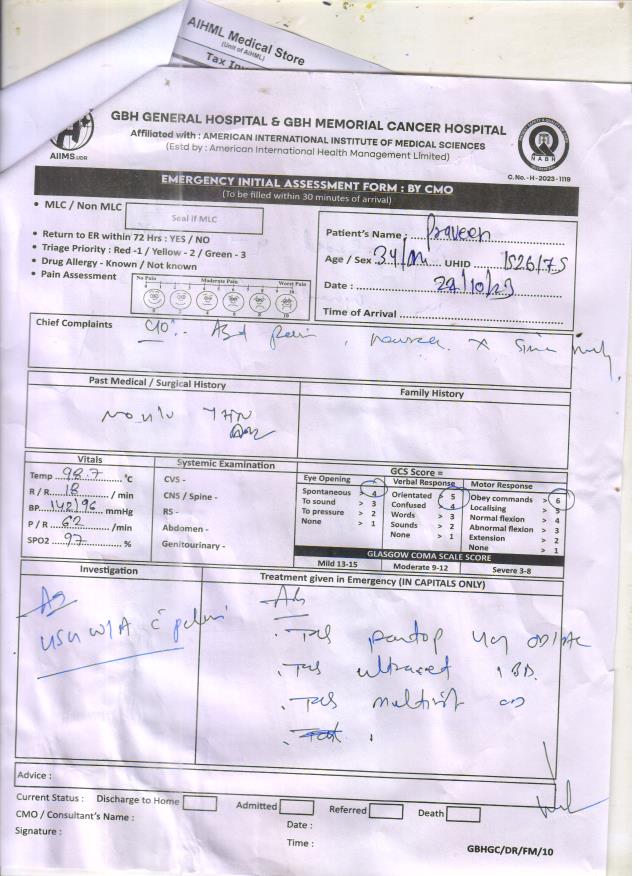 AIHML Medical Store
(Unit of AIHML)
Tax Inv
AIIMS.UDR
GBH GENERAL HOSPITAL & GBH MEMORIAL CANCER HOSPITAL
Affiliated with : AMERICAN INTERNATIONAL INSTITUTE OF MEDICAL SCIENCES
(Estd by : American International Health Management Limited)
NABH
C. No. - H - 2023 - 1119
EMERGENCY INITIAL ASSESSMENT FORM : BY CMO
(To be filled within 30 minutes of arrival)
• MLC / Non MLC
Seal if MLC
• Return to ER within 72 Hrs : YES / NO
• Triage Priority : Red -1 / Yellow - 2 / Green - 3
• Drug Allergy - Known / Not known
• Pain Assessment
No Pain Moderate Pain Worst Pain
0 2 4 6 8 10
Patient's Name : Praveen
Age / Sex 34/M UHID 152617S
Date : 24/10/23
Time of Arrival
Chief Complaints C/O :- Abd pain, nausea x since
Past Medical / Surgical History
Family History
No h/o THN
Vitals
Temp 98.7 °C
R / R 18 / min
BP 142/96 mmHg
P / R 62 /min
SPO2 97 %
Systemic Examination
CVS -
CNS / Spine -
RS -
Abdomen -
Genitourinary -
GCS Score =
Eye Opening Verbal Response Motor Response
Spontaneous > 4 Orientated > 5 Obey commands > 6
To sound > 3 Confused > 4 Localising > 5
To pressure > 2 Words > 3 Normal flexion > 4
None > 1 Sounds > 2 Abnormal flexion > 3
None > 1 Extension > 2
None > 1
GLASGOW COMA SCALE SCORE
Mild 13-15 Moderate 9-12 Severe 3-8
Investigation
USG W/A c̄ pelvis
Treatment given in Emergency (IN CAPITALS ONLY)
Adv
. Tab pantop 40 OD/AC
. Tab ultracet 1 BD.
. Tab multivit OD
Advice :
Current Status : Discharge to Home Admitted Referred Death
CMO / Consultant's Name : Date :
Signature : Time :
GBHGC/DR/FM/10